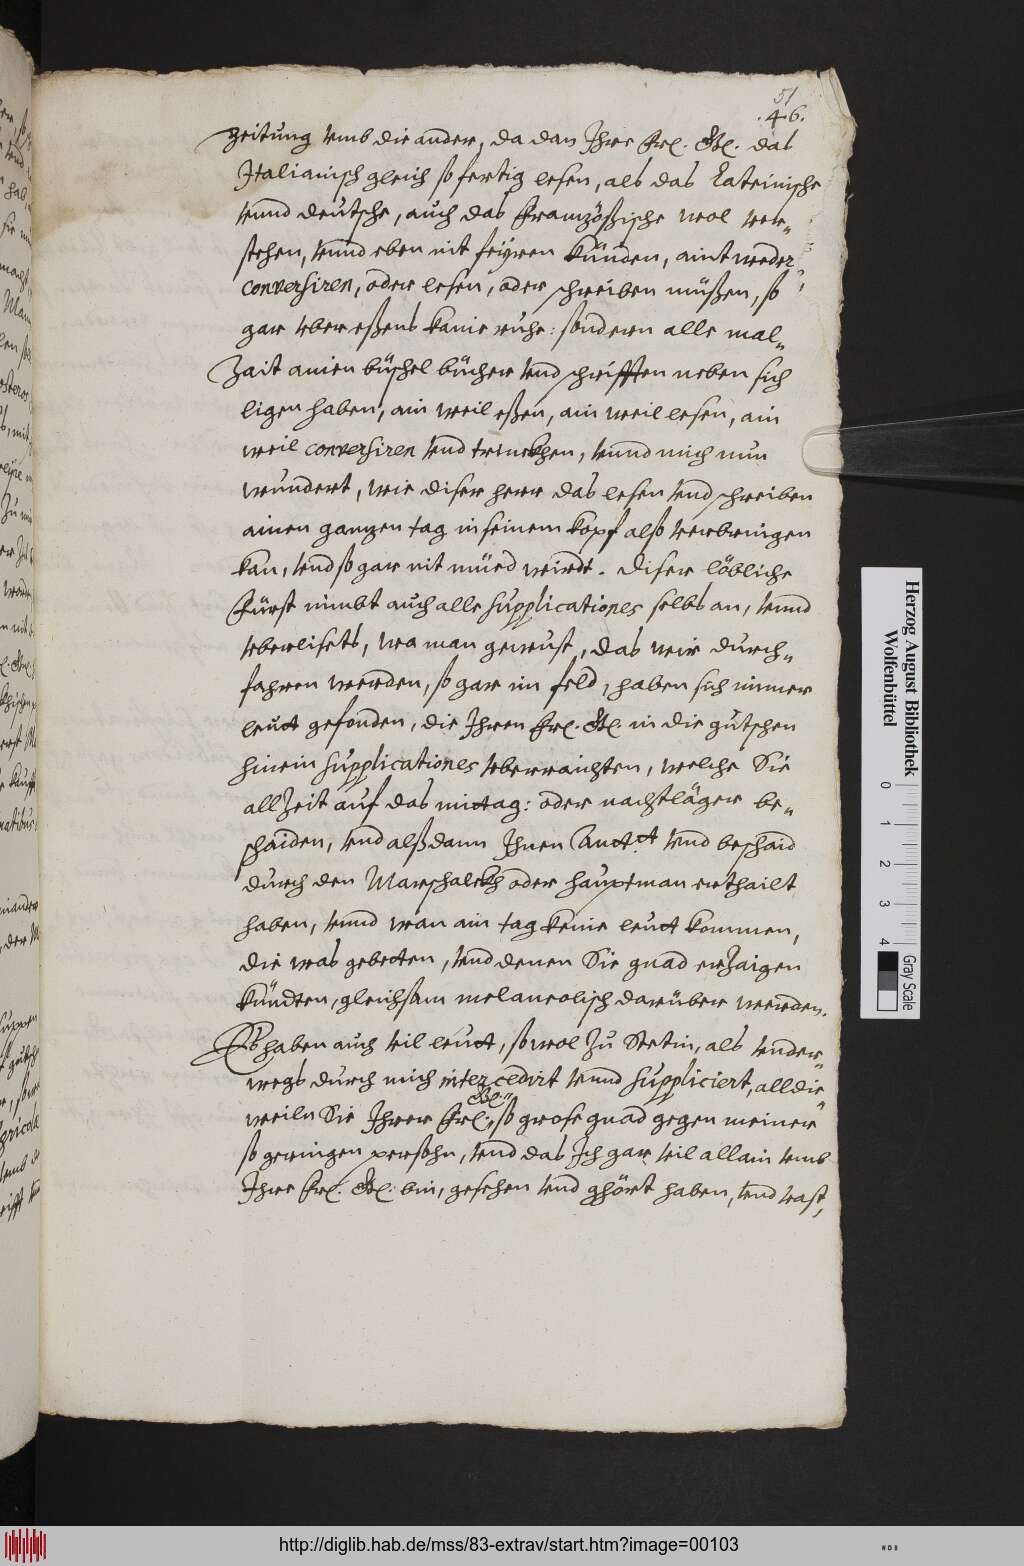 51
.46.
zeitung vmb die ander, da dan Ihre Frl. Gl. das
Italianisch gleich so fertig lesen, als das Lateinische
vnnd deutsche, auch das Französische wol ver„
stehen, vnnd eben nit feÿren künden, aintweder
conversiren, oder lesen, oder schreiben müßen, so
gar vber eßens kaine ruhe: sondern alle mal„
Zait ainen büschel bücher vnd schrifften neben sich
ligen haben, ain weil eßen, ain weil lesen, ain
weil conversiren vnd trinckhen, vnnd mich nun
wundert, wie diser herr das lesen vnd schreiben
ainen ganzen tag in seinem kopf alß verbringen
kan, vnd so gar nit müed wirdt. Diser löbliche
Fürst nimbt auch alle supplicationes selbs an, vnnd
vberlisets, wa man gewust, das wir durch„
fahren werden, so gar im feld, haben sich immer
leut gefonden, die Ihren Frl. Gl. in die gutschen
hinein supplicationes vberraichten, welche Sie
allZeit auf das mitag: oder nachtläger be„
schaiden, vnd alßdann Ihnen Antt vnd beschaid
durch den Marschalckh oder hauptman erthailt
haben, vnnd wan ain tag keine leut kommen,
die was gebetten, vnd denen Sie gnad erZaigen
kündten, gleichsam melancolisch darüber werden.
Es haben auch vil leut, sowol Zu Stetin, als vnder„
wegs durch mich intercedirt vnnd suppliciert, alldie„
weiln Sie Ihrer Frl. Gl. so grose gnad gegen meiner
so geringen persohn, vnd das Ich gar vil allain vmb
Ihre Frl. Gl. bin, gesehen vnd ghört haben, vnd vast,
Herzog August Bibliothek
Wolfenbüttel
0 1 2 3 4
Gray Scale
http://diglib.hab.de/mss/83-extrav/start.htm?image=00103